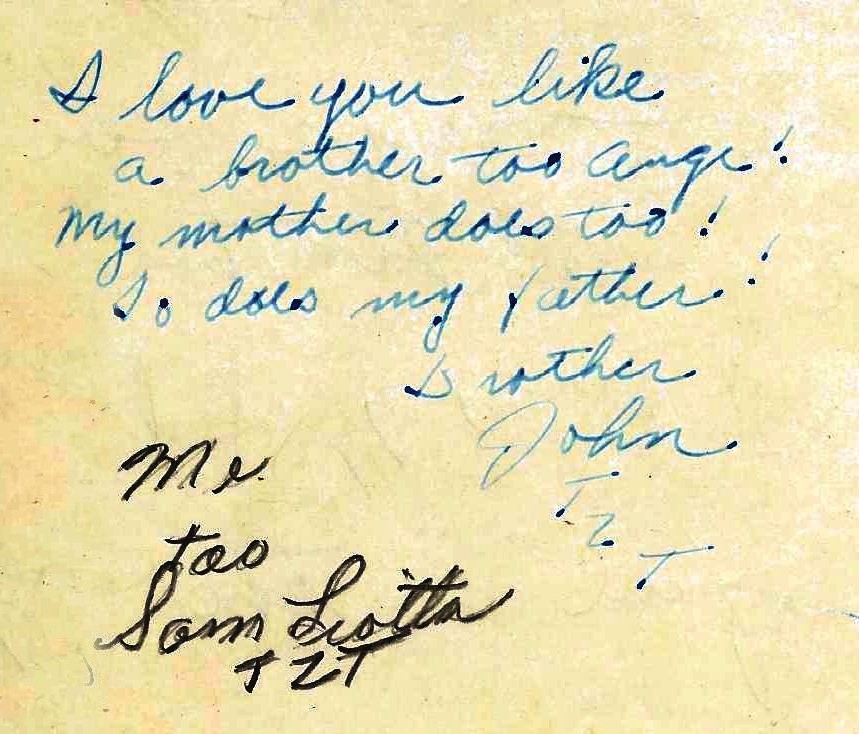 I love you like
a brother too Ange!
My mother does too!
So does my father!
Brother
John
T
Z
T
Me
too
Sam Liotta
TZT